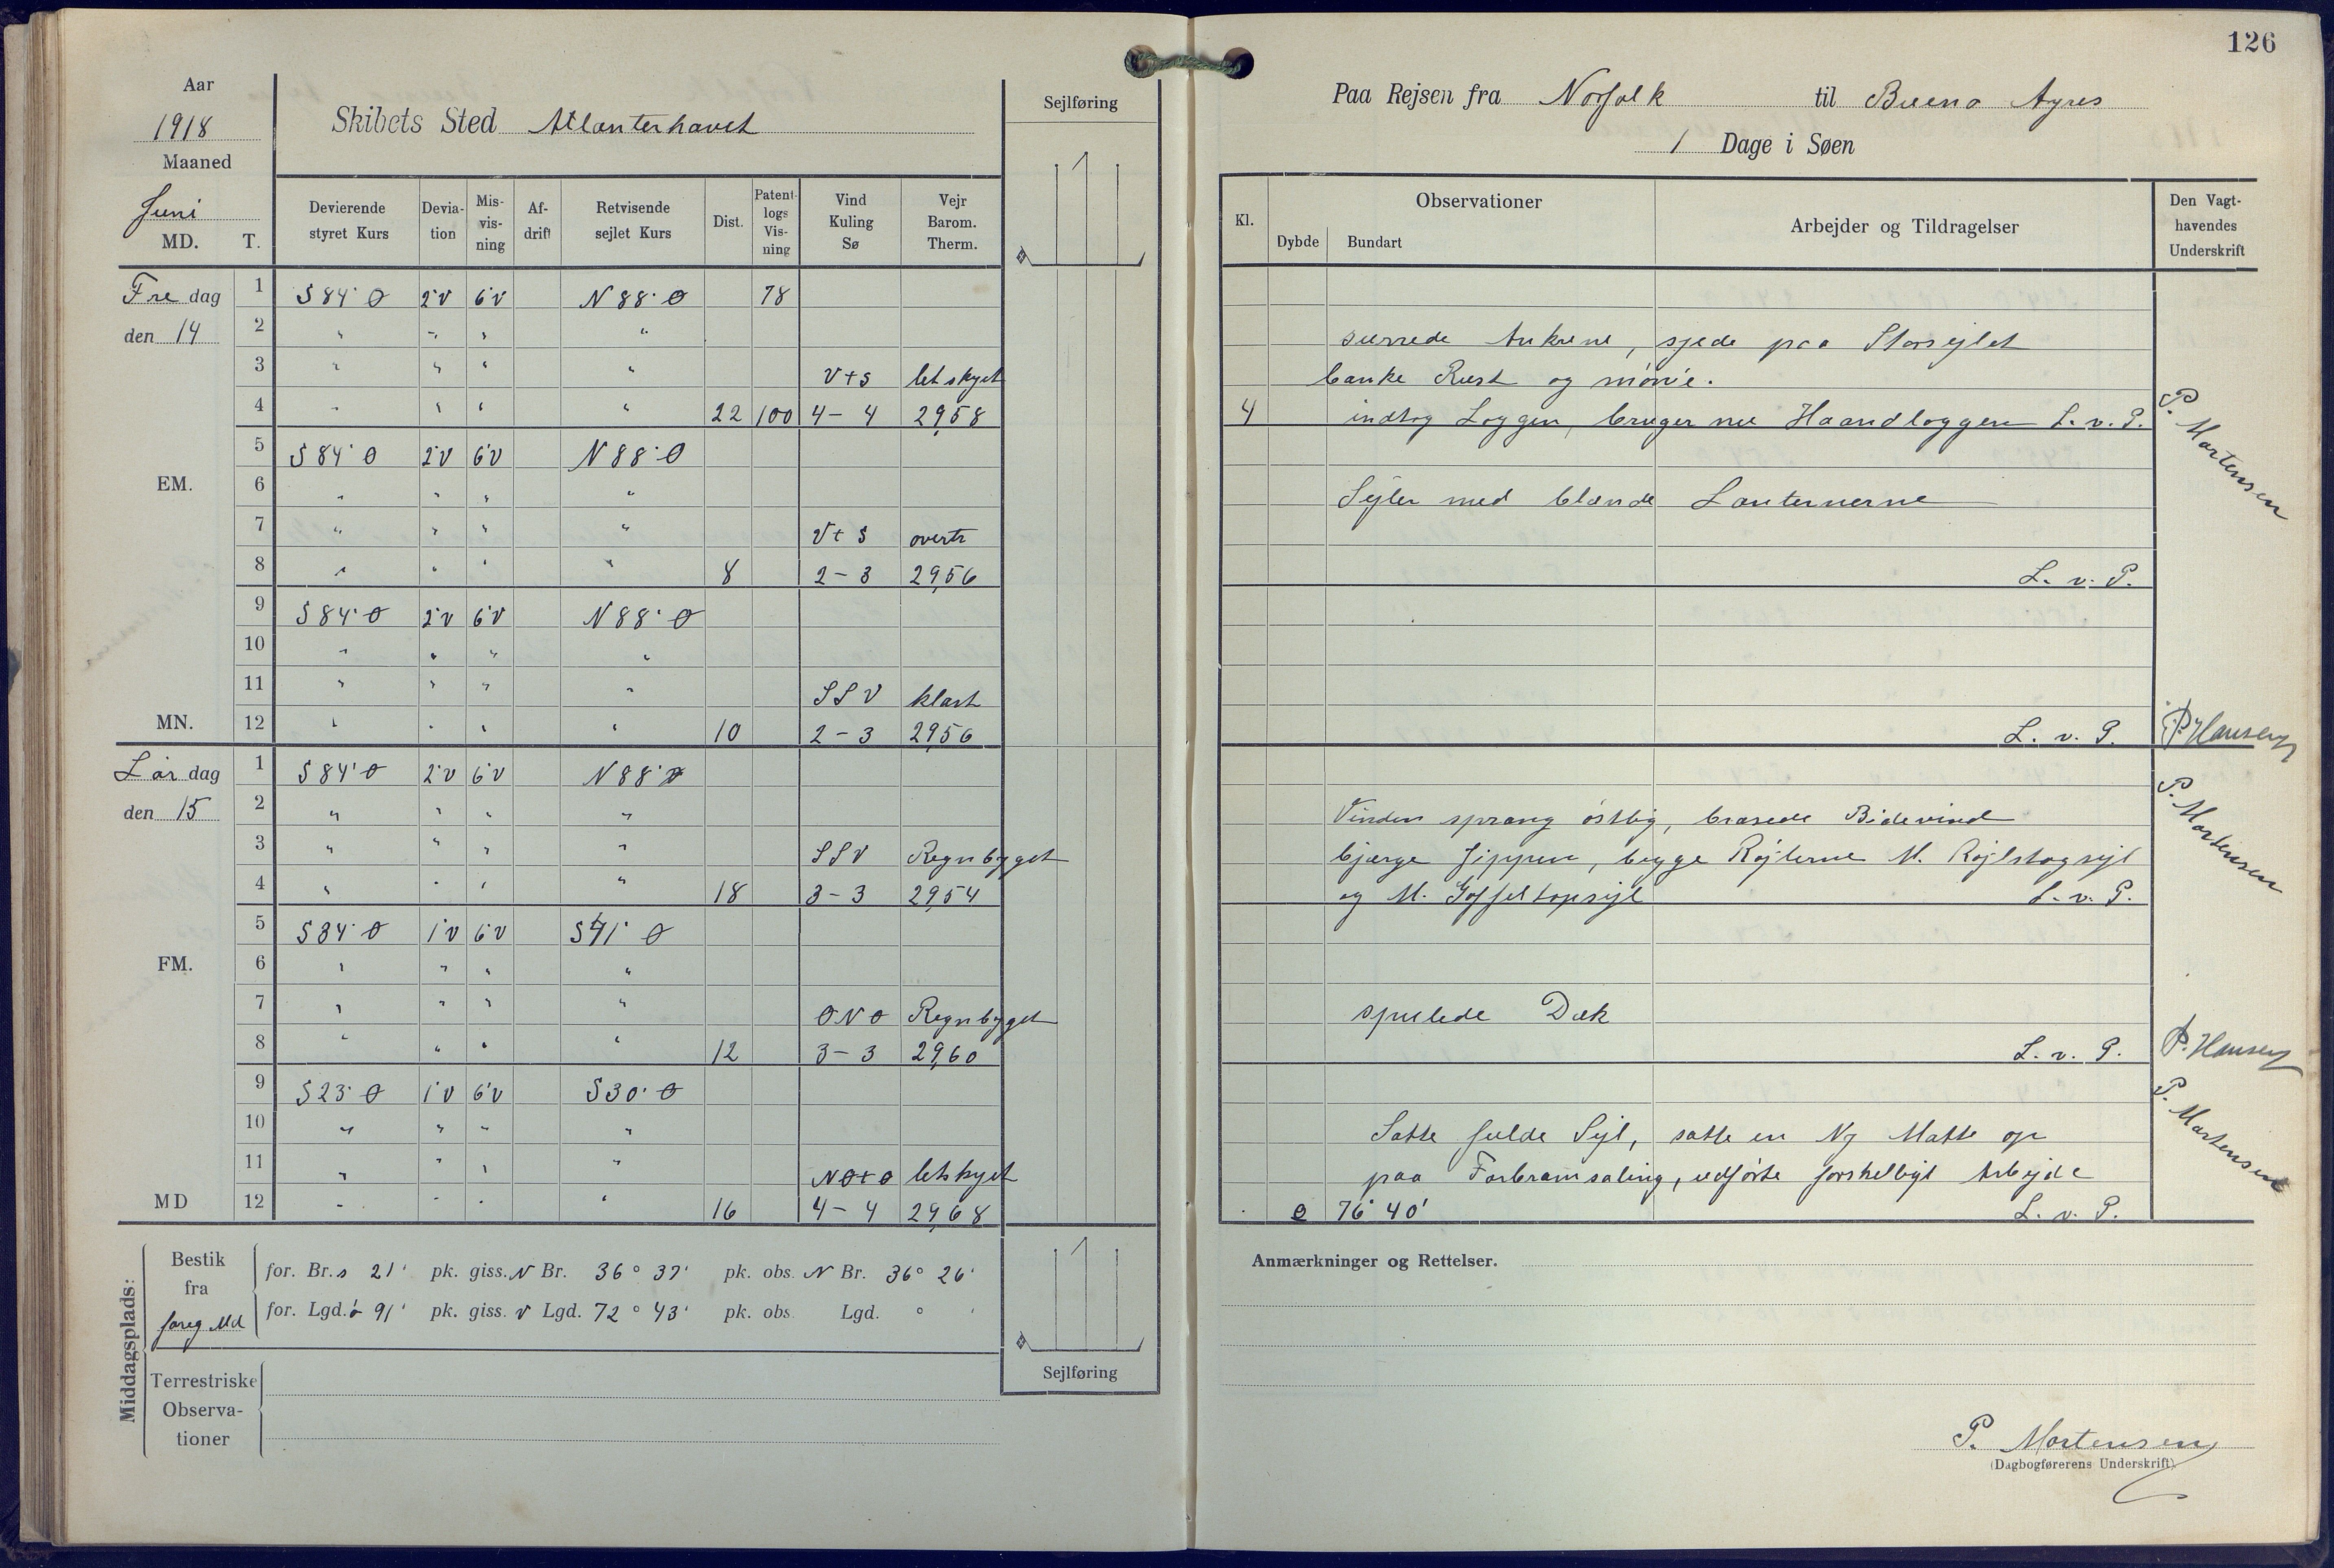 126
Aar
1918
Maaned
Juni
MD. T.
Skibets Sted Atlanterhavet
Sejlføring
Devierende styret Kurs
Devia-tion
Mis-vis-ning
Af-drift
Retvisende sejlet Kurs
Dist.
Patent-logs Vis-ning
Vind Kuling Sø
Vejr Barom. Therm.
Fredag 1 S 84° Ø 2°V 6°V N 88° Ø 78
den 14 2 " " " "
3 " " " " V t S letskyet
4 " " " " 22 100 4 - 4 29,58
5 S 84° Ø 2°V 6°V N 88° Ø
EM. 6 " " " "
7 " " " " V t S overtr
8 " " " " 8 2 - 3 29,56
9 S 84° Ø 2°V 6°V N 88° Ø
10 " " " "
11 " " " " SSV klart
MN. 12 " " " " 10 2 - 3 29,56
Lørdag 1 S 84° Ø 2°V 6°V N 88° Ø
den 15 2 " " " "
3 " " " " SSV Regnbyget
4 " " " " 18 3 - 3 29,54
5 S 34° Ø 1°V 6°V S 41° Ø
FM. 6 " " " "
7 " " " " ONO Regnbyget
8 " " " " 12 3 - 3 29,60
9 S 23° Ø 1°V 6°V S 30° Ø
10 " " " "
11 " " " " NØtØ letskyet
MD 12 " " " " 16 4 - 4 29,68
Middagsplads:
Bestik fra foreg Md
for. Br. S 21' pk. giss. N Br. 36° 37' pk. obs. N Br. 36° 26'
for. Lgd. Ø 91' pk. giss. V Lgd. 72° 43' pk. obs. Lgd. ° '
Terrestriske Observa-tioner
Sejlføring
Paa Rejsen fra Norfolk til Bueno Ayres
1 Dage i Søen
Kl.
Observationer
Dybde Bundart
Arbejder og Tildragelser
Den Vagt-havendes Underskrift
surrede Ankrene, syede paa Storsejlet
banke Rust og mønie.
4 indtog Loggen, bruger nu Haandloggen L. v. P.
P. Mortensen
Sejler med blænde Lanternerne
L. v. P.
L. v. P. P. Hansen
Vinden sprang østlig, brasede Bidevind
bjærge Jippen, begge Røjlerne M. Røjlstagsejl
og M. Gaffeltopsejl L. v. P.
P. Mortensen
spulede Dæk
L. v. P. P. Hansen
Satte fulde Sejl, satte en Ny Matte op
paa Forbramsaling, udførte forskelligt Arbejde
76° 40' L. v. P.
P. Mortensen
Anmærkninger og Rettelser.
P. Mortensen
(Dagbogførerens Underskrift)